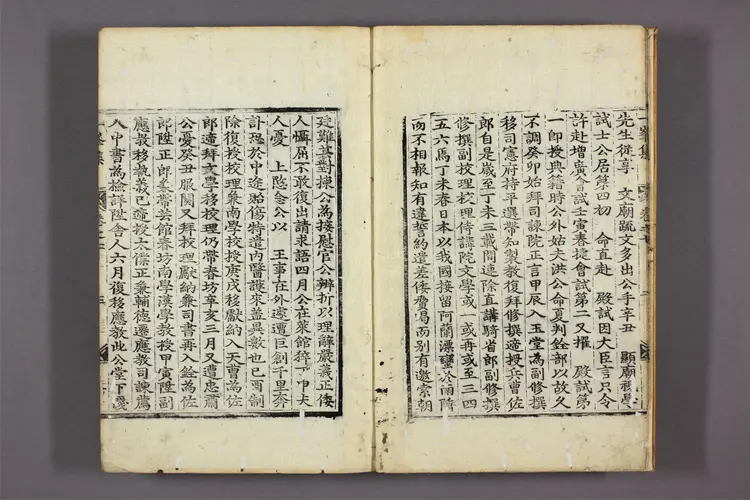 先生從享 文廟疏文多出公手辛丑 顯廟視學
試士公居第四初 命直赴 殿試因大臣言只令
許赴增廣會試壬寅春捷會試第二又擢 殿試第
一郎授典籍時公外姑夫洪公命夏判銓部以故久
不調癸卯始拜司諫院正言甲辰入玉堂為副修撰
移司憲府持平選帶知製教復拜修撰遞授兵曹佐
郎自是歲至丁未三載間連除直講騎省郎副修撰
修撰副校理校理侍講院文學或一或再或至三四
五六焉丁未春日本以我國接留阿蘭漂蠻公雨隣
而不相報知有違誓約遣差倭費偈而別有邀索朝
廷難其對揀公為接慰官公辨折以理辭嚴義正倭
人慴屈不敢復出請求語四月公在萊館猝丁中夫
人憂 上愍念公以 王事在外遽遭巨創千里奔
計恐於中途殆傷特遣內醫護來蓋異數也己酉制
除復授校理兼南學校授庚戌移獻納入天曹為佐
郎遞拜文學移校理仍帶春坊辛亥三月又遭忠肅
公憂癸丑服闋又拜校理獻納兼司書再入銓為佐
郎陞正郎兼帶芸館春坊南學漢學教授甲寅陞副
應教移執義已遞授太僕正兼輔德遷應教司諫薦
入中書為檢詳陞舍人六月復移應教此公堂下